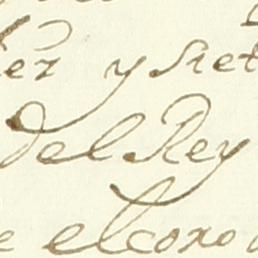 y siet
del Rey
el coro